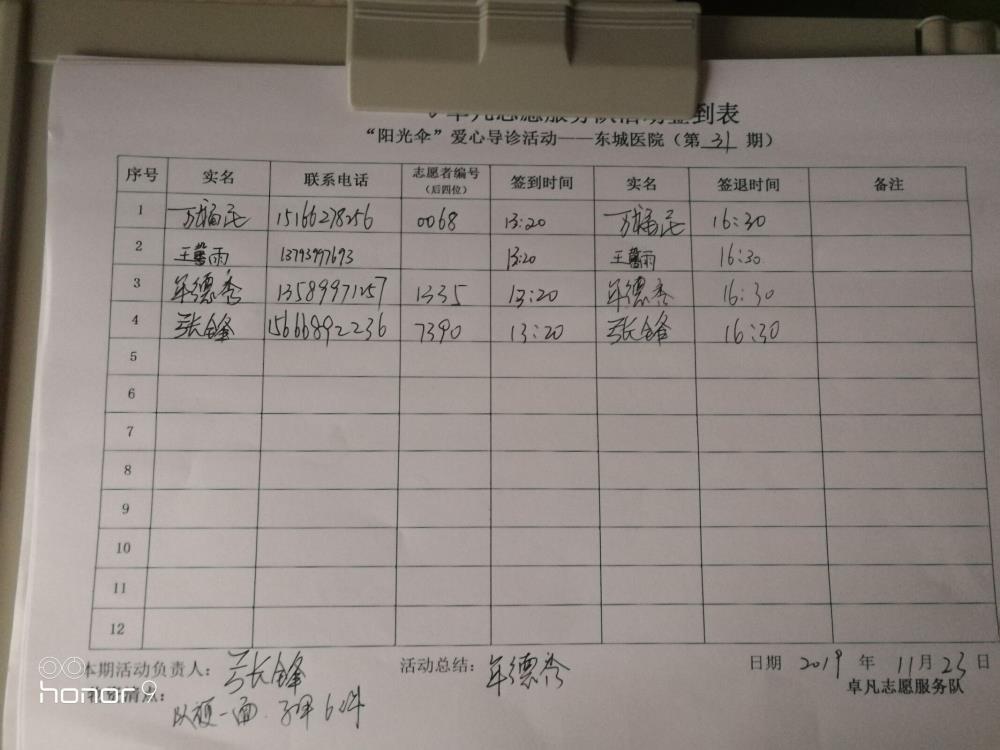 卓凡志愿服务队活动签到表
“阳光伞”爱心导诊活动——东城医院（第 31 期）
序号 实名 联系电话 志愿者编号（后四位） 签到时间 实名 签退时间 备注
1 15166278256 0068 13:20 16:30
2 王馨雨 13793997693 13:20 王馨雨 16:30
3 牟德秀 13589971257 1335 13:20 牟德秀 16:30
4 张锋 15666892236 7390 13:20 张锋 16:30
5
6
7
8
9
10
11
12
本期活动负责人： 张锋 活动总结： 牟德秀 日期 2019 年 11月 23 日
清点： 一面. 6件 卓凡志愿服务队
honor 9